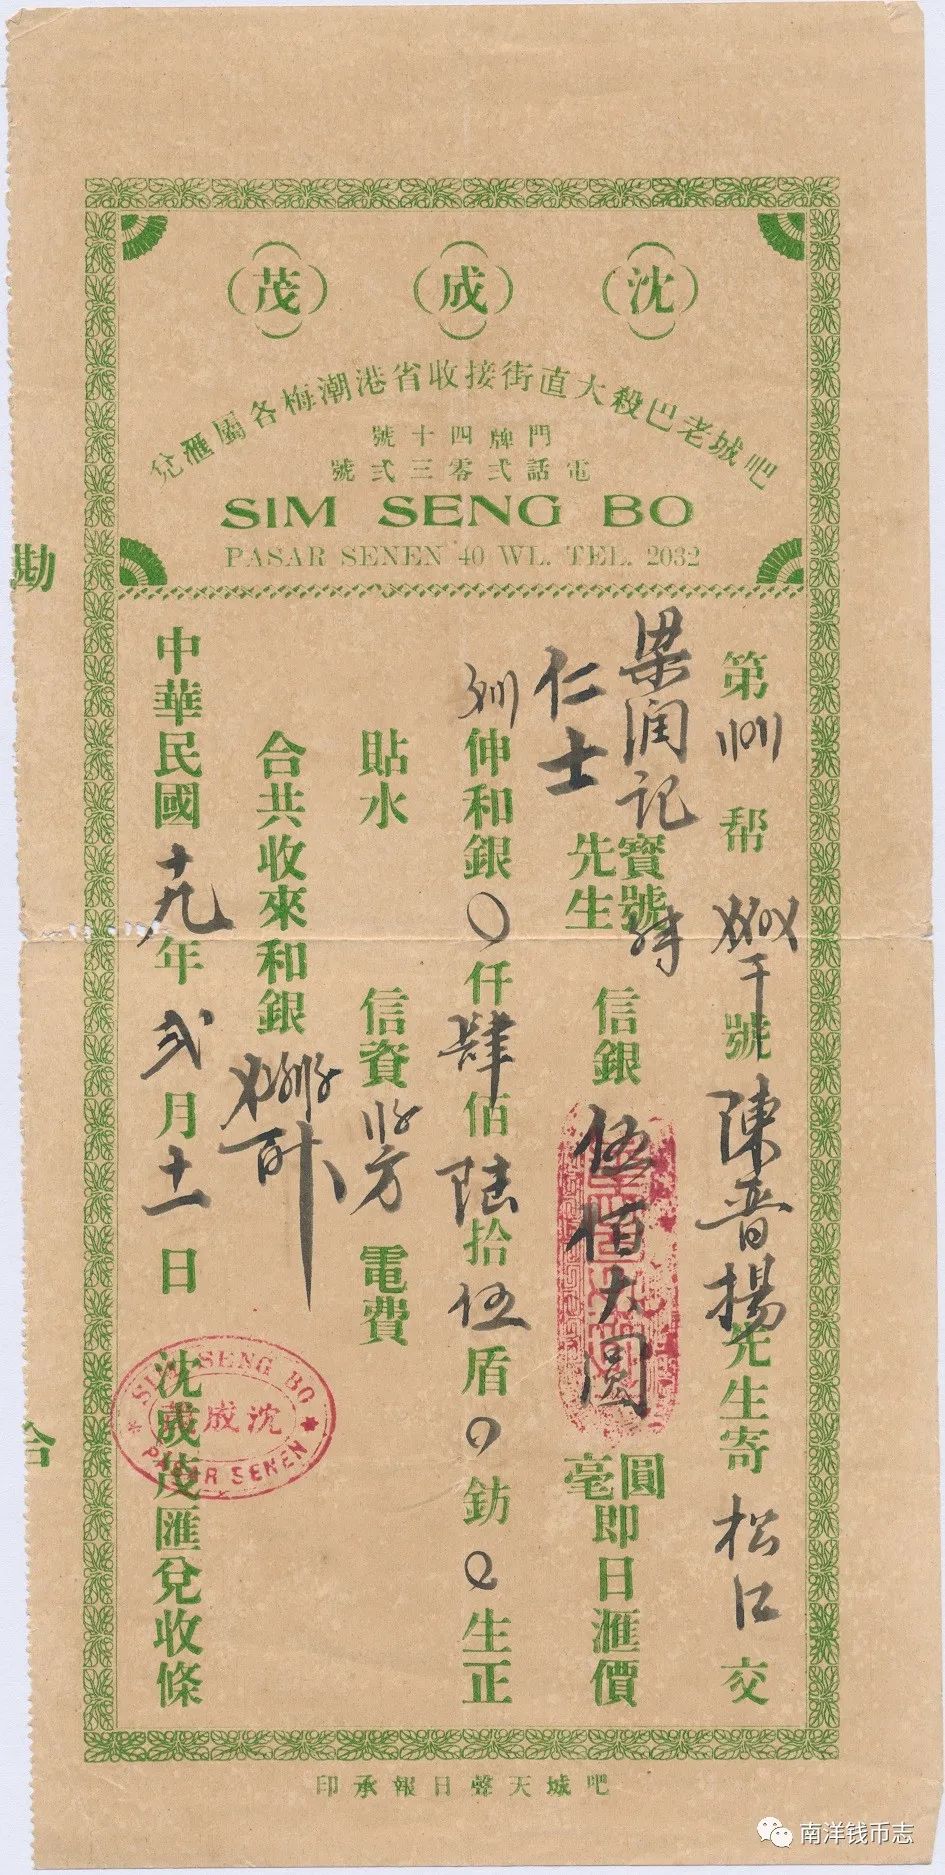 沈成茂
吧城老巴殺大直街接收省港潮梅各屬滙兌
門牌四十號
電話弍零三弍號
SIM SENG BO
PASAR SENEN 40 WL. TEL. 2032
第 幇 號陳晋揚先生寄松江交
梁润记寶號
仁士先生
信銀伍佰大圓圓毫即日滙價
伸和銀〇仟肆佰陸拾伍盾〇鈁〇生正
貼水 信資 方 電費
合共收來和銀
中華民國十九年弍月十一日 沈成茂匯兌收條
SIM SENG BO
沈成茂
PASAR SENEN
勘
合
吧城天聲日報承印
南洋钱币志